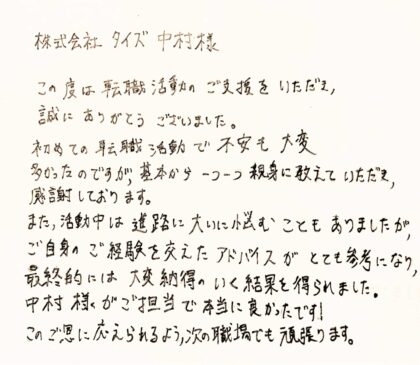 株式会社 タイズ 中村様
この度は転職活動のご支援をいただき,
誠にありがとうございました。
初めての転職活動で不安も大変
多かったのですが,基本から一つ一つ親身に教えていただき,
感謝しております。
また,活動中は進路に大いに悩むこともありましたが,
ご自身のご経験を交えたアドバイスがとても参考になり,
最終的には大変納得のいく結果を得られました。
中村様がご担当で本当に良かったです!
このご恩に応えられるよう,次の職場でも頑張ります。